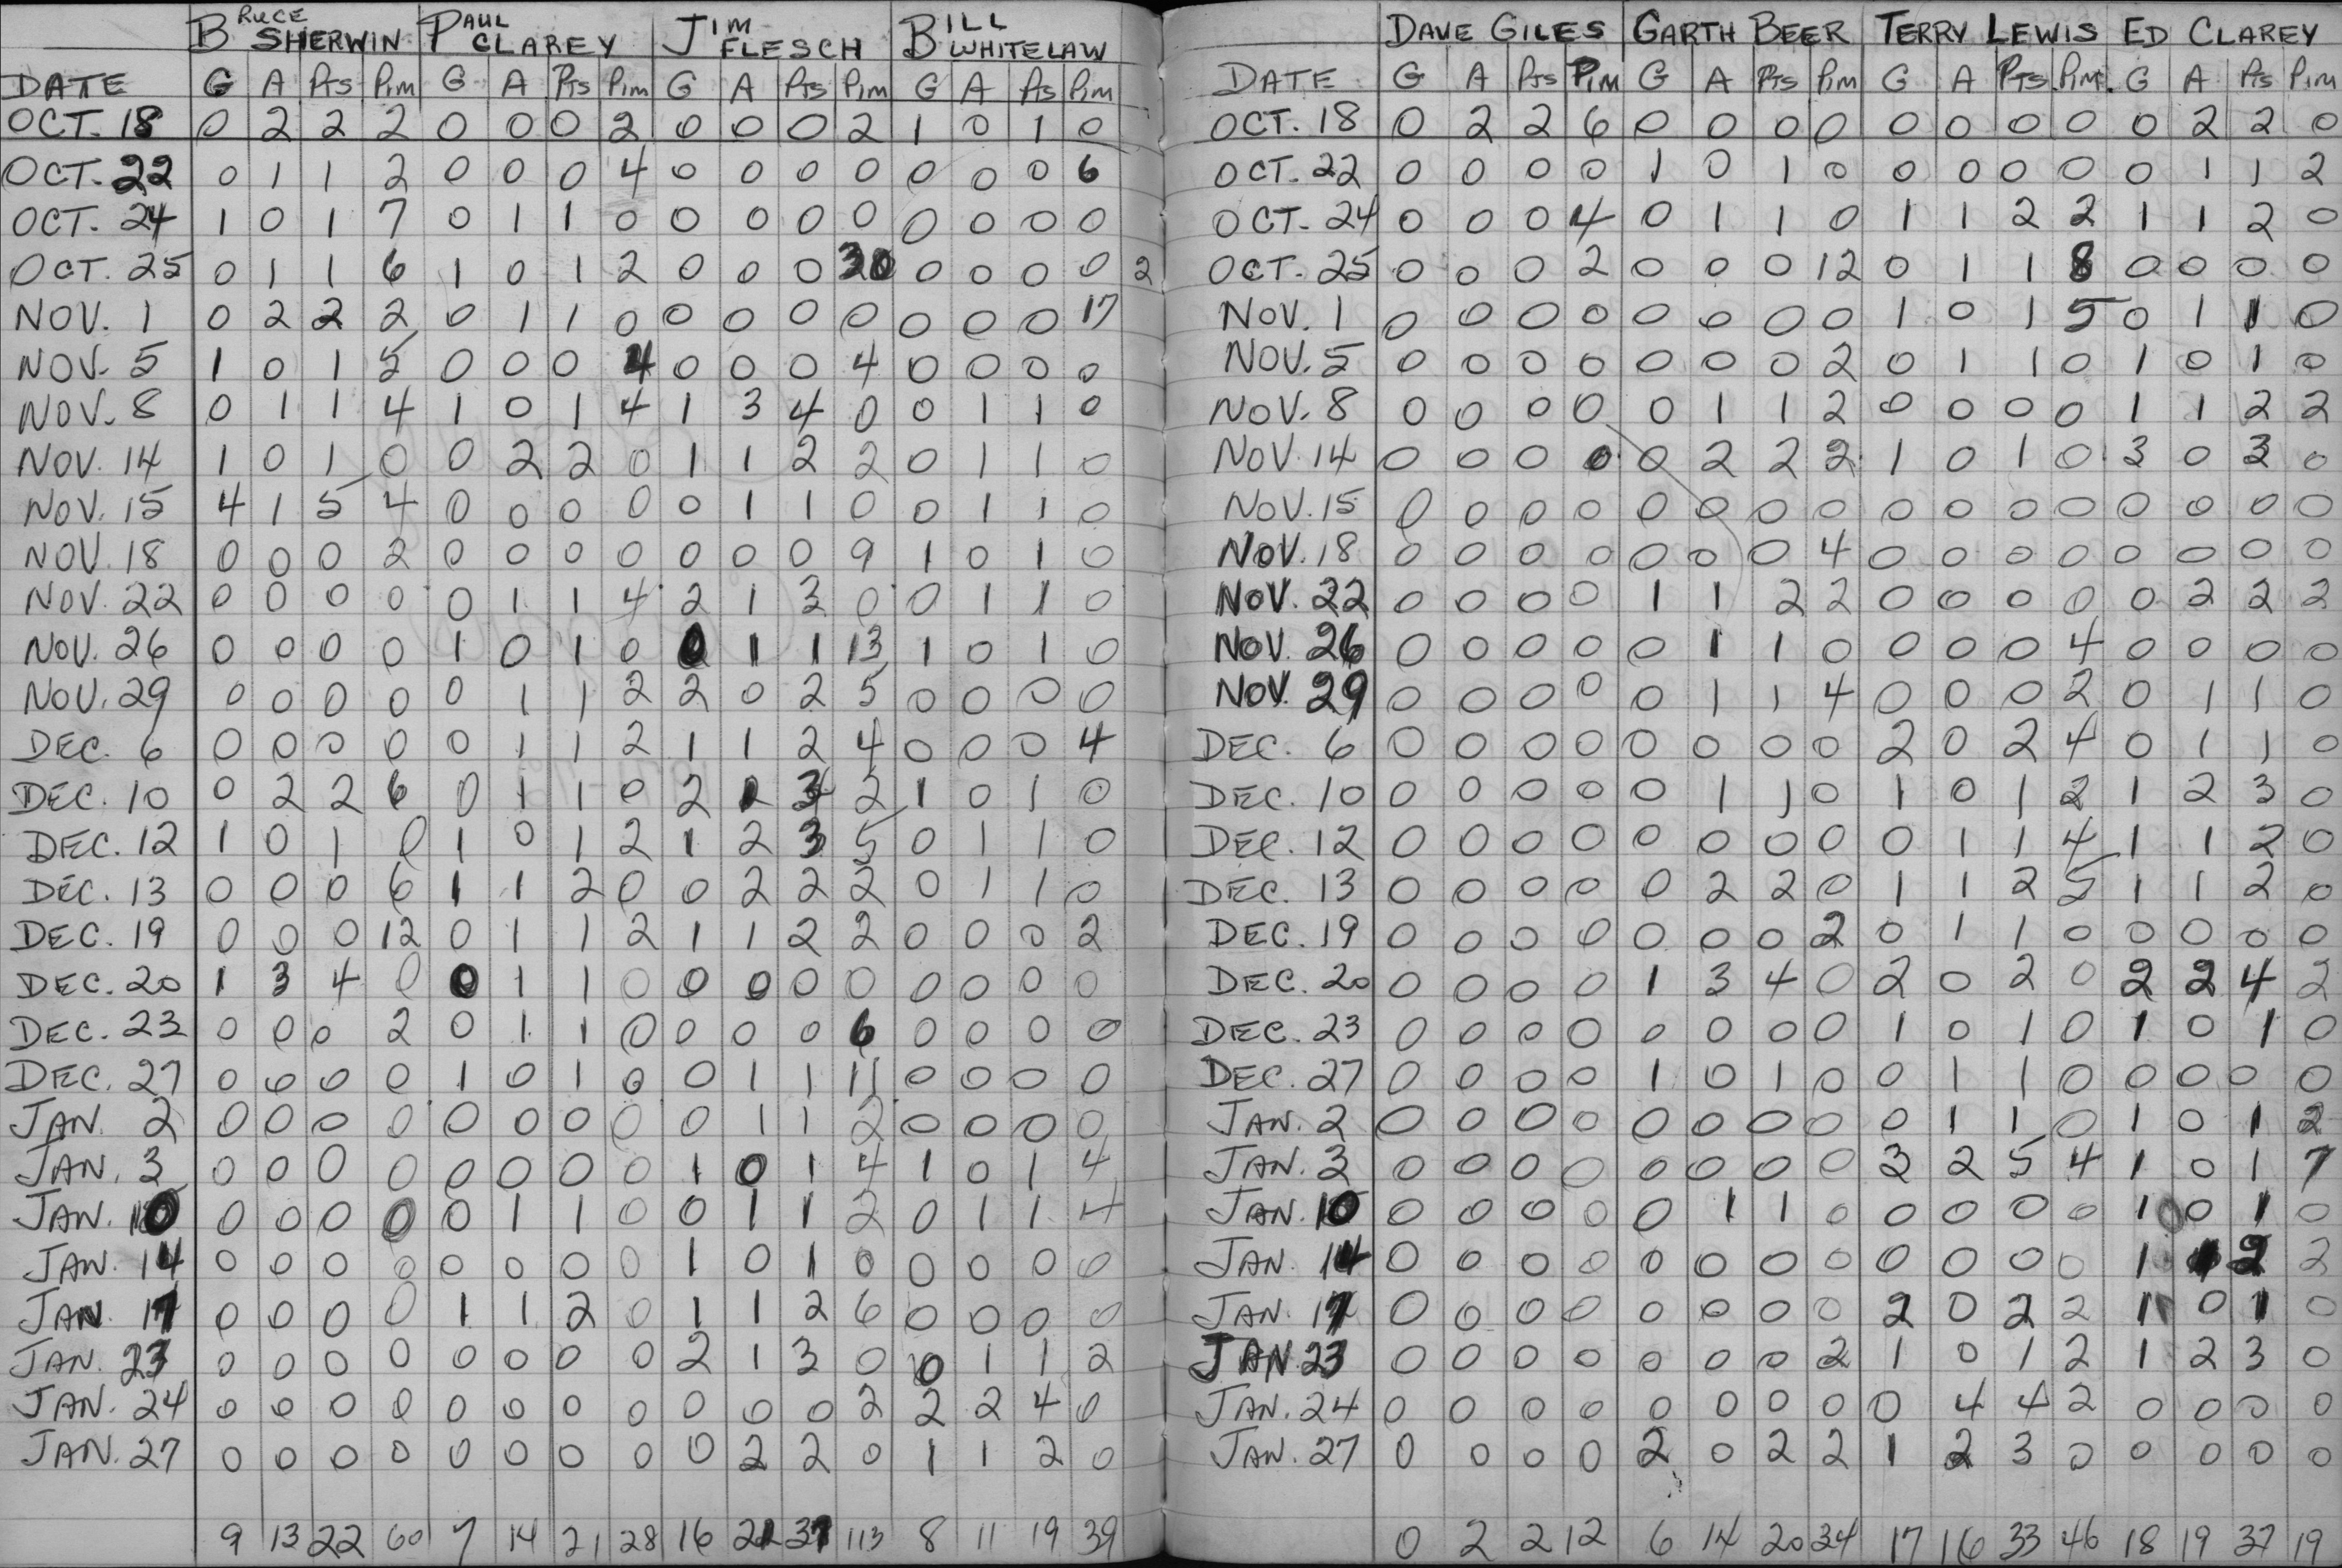 BRUCE SHERWIN PAUL CLAREY JIM FLESCH BILL WHITELAW
DATE G A Pts Pim G A Pts Pim G A Pts Pim G A Pts Pim
OCT. 18 0 2 2 2 0 0 0 2 0 0 0 2 1 0 1 0
OCT. 22 0 1 1 2 0 0 0 4 0 0 0 0 0 0 0 6
OCT. 24 1 0 1 7 0 1 1 0 0 0 0 0 0 0 0 0
OCT. 25 0 1 1 6 1 0 1 2 0 0 0 0 0 0 0 2
NOV. 1 0 2 2 2 0 1 1 0 0 0 0 0 0 0 0 17
NOV. 5 1 0 1 5 0 0 0 4 0 0 0 4 0 0 0 0
NOV. 8 0 1 1 4 1 0 1 4 1 3 4 0 0 1 1 0
NOV. 14 1 0 1 0 0 2 2 0 1 1 2 2 0 1 1 0
NOV. 15 4 1 5 4 0 0 0 0 0 1 1 0 0 1 1 0
NOV. 18 0 0 0 2 0 0 0 0 0 0 0 9 1 0 1 0
NOV. 22 0 0 0 0 0 1 1 4 2 1 3 0 0 1 1 0
NOV. 26 0 0 0 0 1 0 1 0 0 1 1 13 1 0 1 0
NOV. 29 0 0 0 0 0 1 1 2 2 0 2 5 0 0 0 0
DEC. 6 0 0 0 0 0 1 1 2 1 1 2 4 0 0 0 4
DEC. 10 0 2 2 6 0 1 1 0 2 2 1 0 1 0
DEC. 12 1 0 1 0 1 0 1 2 1 2 3 5 0 1 1 0
DEC. 13 0 0 0 6 1 1 2 0 0 2 2 2 0 1 1 0
DEC. 19 0 0 0 12 0 1 1 2 1 1 2 2 0 0 0 2
DEC. 20 1 3 4 0 0 1 1 0 0 0 0 0 0 0 0 0
DEC. 23 0 0 0 2 0 1 1 0 0 0 0 6 0 0 0 0
DEC. 27 0 0 0 0 1 0 1 0 0 1 1 11 0 0 0 0
JAN. 2 0 0 0 0 0 0 0 0 0 1 1 2 0 0 0 0
JAN. 3 0 0 0 0 0 0 0 0 1 0 1 4 1 0 1 4
JAN. 10 0 0 0 0 0 1 1 0 0 1 1 2 0 1 1 4
JAN. 14 0 0 0 0 0 0 0 0 1 0 1 0 0 0 0 0
JAN. 17 0 0 0 0 1 1 2 0 1 1 2 6 0 0 0 0
JAN. 23 0 0 0 0 0 0 0 0 2 1 3 0 0 1 1 2
JAN. 24 0 0 0 0 0 0 0 0 0 0 0 2 2 2 4 0
JAN. 27 0 0 0 0 0 0 0 0 0 2 2 0 1 1 2 0
9 13 22 60 7 14 21 28 16 21 37 113 8 11 19 39
DAVE GILES GARTH BEER TERRY LEWIS ED CLAREY
DATE G A Pts Pim G A Pts Pim G A Pts Pim. G A Pts Pim
OCT. 18 0 2 2 6 0 0 0 0 0 0 0 0 0 2 2 0
OCT. 22 0 0 0 0 1 0 1 0 0 0 0 0 0 1 1 2
OCT. 24 0 0 0 4 0 1 1 0 1 1 2 2 1 1 2 0
OCT. 25 0 0 0 2 0 0 0 12 0 1 1 8 0 0 0 0
NOV. 1 0 0 0 0 0 0 0 0 1 0 1 5 0 1 1 0
NOV. 5 0 0 0 0 0 0 0 2 0 1 1 0 1 0 1 0
NOV. 8 0 0 0 0 0 1 1 2 0 0 0 0 1 1 2 2
NOV. 14 0 0 0 0 0 2 2 2 1 0 1 0 3 0 3 0
NOV. 15 0 0 0 0 0 0 0 0 0 0 0 0 0 0 0 0
NOV. 18 0 0 0 0 0 0 0 4 0 0 0 0 0 0 0 0
NOV. 22 0 0 0 0 1 1 2 2 0 0 0 0 0 2 2 2
NOV. 26 0 0 0 0 0 1 1 0 0 0 0 4 0 0 0 0
NOV. 29 0 0 0 0 0 1 1 4 0 0 0 2 0 1 1 0
DEC. 6 0 0 0 0 0 0 0 0 2 0 2 4 0 1 1 0
DEC. 10 0 0 0 0 0 1 1 0 1 0 1 2 1 2 3 0
DEC. 12 0 0 0 0 0 0 0 0 0 1 1 4 1 1 2 0
DEC. 13 0 0 0 0 0 2 2 0 1 1 2 5 1 1 2 0
DEC. 19 0 0 0 0 0 0 0 2 0 1 1 0 0 0 0 0
DEC. 20 0 0 0 0 1 3 4 0 2 0 2 0 2 2 4 2
DEC. 23 0 0 0 0 0 0 0 0 1 0 1 0 1 0 1 0
DEC. 27 0 0 0 0 1 0 1 0 0 1 1 0 0 0 0 0
JAN. 2 0 0 0 0 0 0 0 0 0 1 1 0 1 0 1 2
JAN. 3 0 0 0 0 0 0 0 0 3 2 5 4 1 0 1 7
JAN. 10 0 0 0 0 0 1 1 0 0 0 0 0 1 0 1 0
JAN. 14 0 0 0 0 0 0 0 0 0 0 0 0 1 1 2 2
JAN. 17 0 0 0 0 0 0 0 0 2 0 2 2 1 0 1 0
JAN 23 0 0 0 0 0 0 0 2 1 0 1 2 1 2 3 0
JAN. 24 0 0 0 0 0 0 0 0 0 4 4 2 0 0 0 0
JAN. 27 0 0 0 0 2 0 2 2 1 2 3 0 0 0 0 0
0 2 2 12 6 14 20 34 17 16 33 46 18 19 37 19